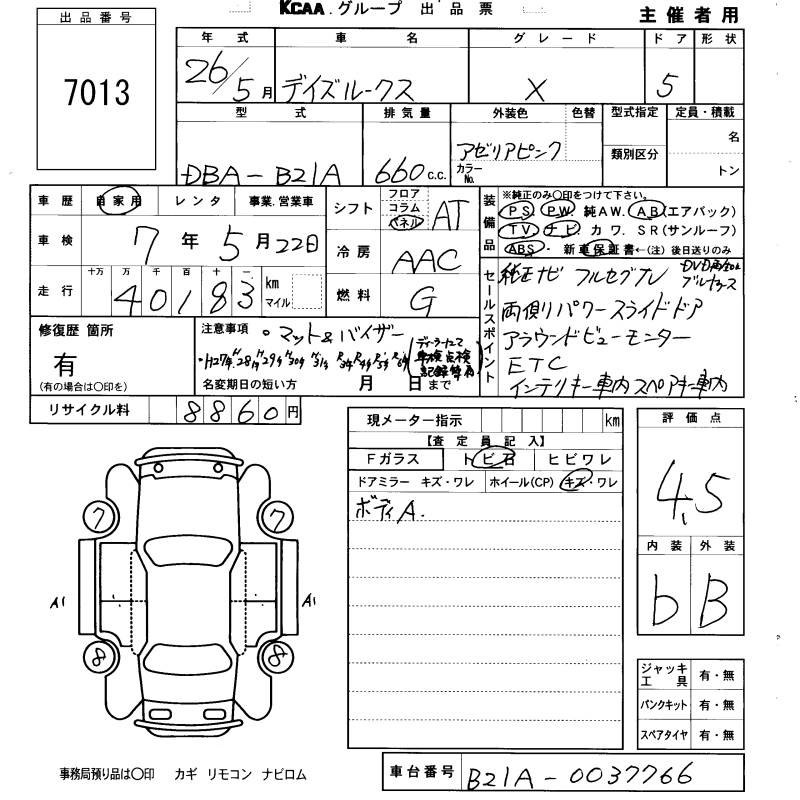 KCAA.グループ 出品票
主催者用
出品番号
7013
年式 車名 グレード ドア 形状
26/5月 デイズルークス X 5
型式 排気量 外装色 色替 型式指定 定員・積載
名
類別区分
DBA-B21A 660c.c. アゼリアピンク
カラーNo.
トン
車歴 自家用 レンタ 事業.営業車
車検 7年5月22日
走行 十万 万 千 百 十 一
40183 km マイル
シフト フロア コラム パネル AT
冷房 AAC
燃料 G
装備品
※純正のみ〇印をつけて下さい。
PS. PW. 純AW. AB(エアバック)
TV ナビ カワ. SR(サンルーフ)
ABS・ 新車保証書←(注) 後日送りのみ
セールスポイント
純正ナビ フルセグTV DVD再生
両側パワースライドドア
アラウンドビューモニター
ETC
インテリキー車内 スペアキー車内
修復歴 箇所
有
(有の場合は〇印を)
注意事項 ・マット&バイザー
・H27年.28年.H29年.H30年.H31年
(ディーラーにて
車検点検
記録簿有)
名変期日の短い方 月 日まで
リサイクル料 8860円
現メーター指示 km
【査定員記入】
Fガラス トビ石 ヒビワレ
ドアミラー キズ・ワレ ホイール(CP) キズ・ワレ
ボディA.
評価点
4.5
内装 外装
b B
7 7
A1 A1
8 8
ジャッキ工具 有・無
パンクキット 有・無
スペアタイヤ 有・無
事務局預り品は〇印 カギ リモコン ナビロム
車台番号 B21A-0037766